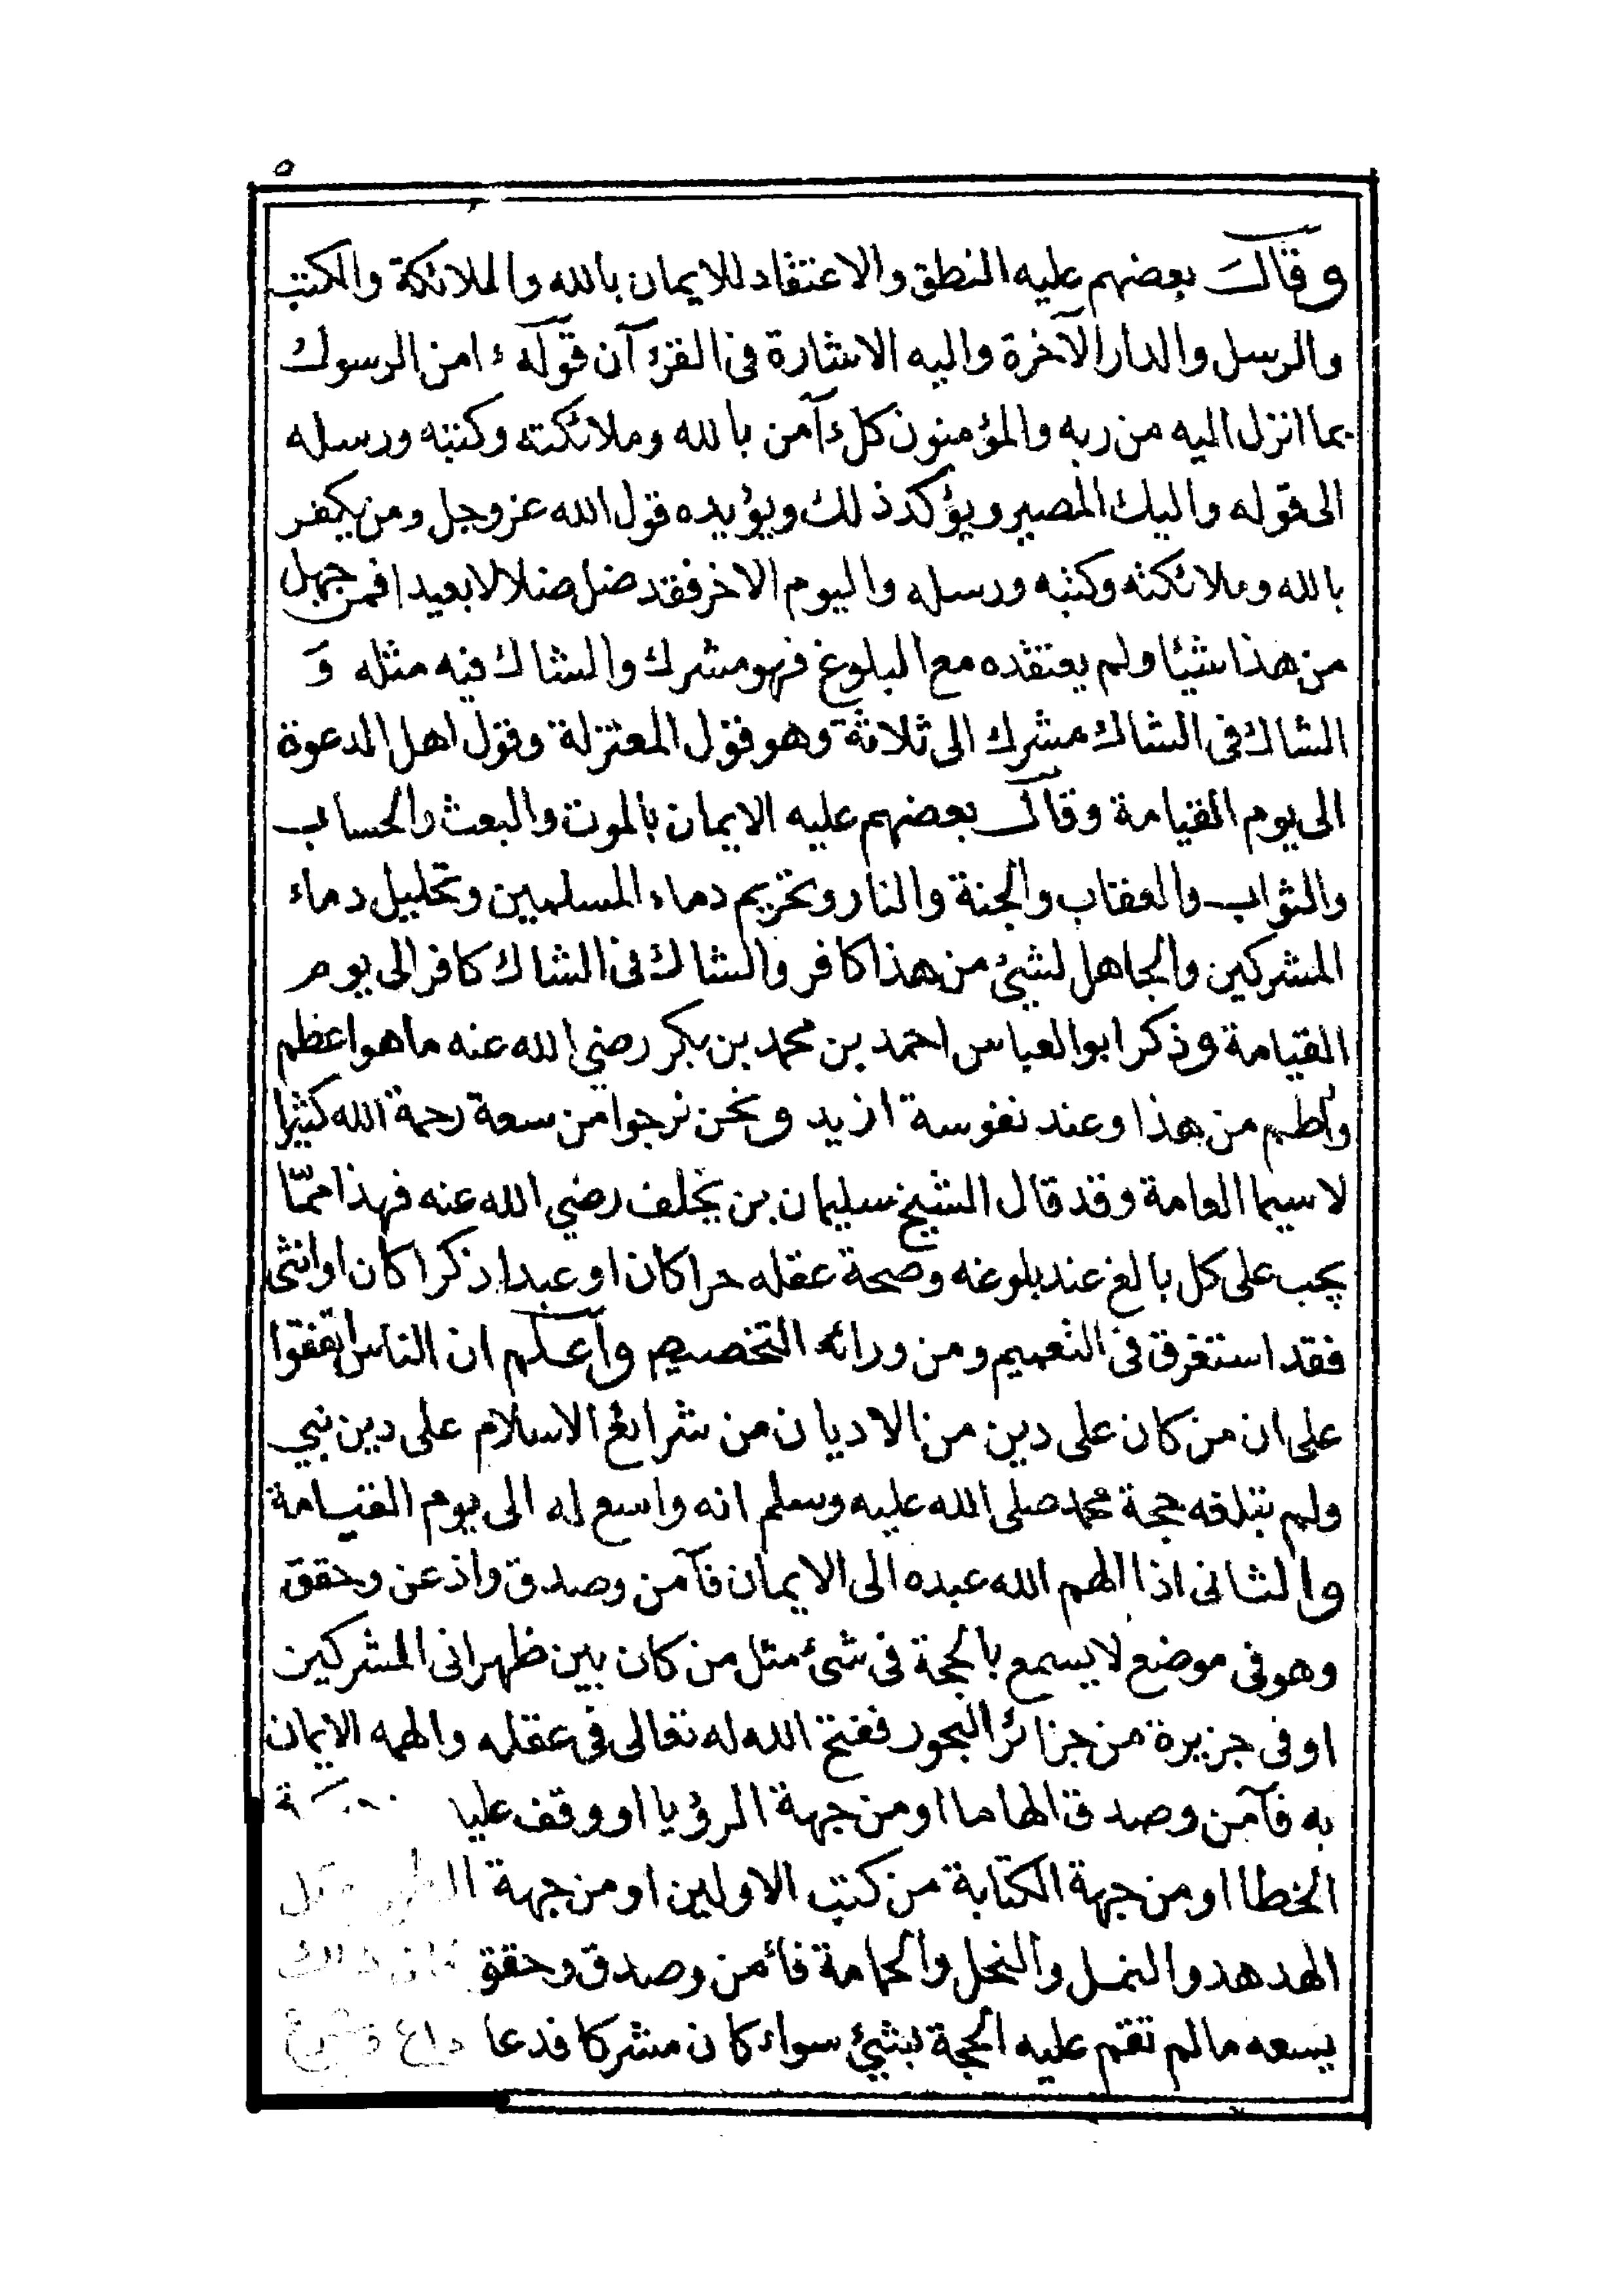 ٥
وقال بعضهم عليه النطق والاعتقاد للايمان بالله والملائكة والكتب
والرسل والدار الآخرة واليه الاشارة في القرءآن قوله ءامن الرسول
بما انزل اليه من ربه والمؤمنون كل ءآمن بالله وملائكته وكتبه ورسله
الى قوله واليك المصير ويؤكد ذلك ويؤيده قول الله عز وجل ومن يكفر
بالله وملائكته وكتبه ورسله واليوم الاخر فقد ضل ضلالا بعيدا فمن جهل
من هذا شيئا ولم يعتقده مع البلوغ فهو مشرك والشاك فيه مثله و
الشاك في الشاك مشرك الى ثلاثة وهو قول المعتزلة وقول اهل الدعوة
الى يوم القيامة وقال بعضهم عليه الايمان بالموت والبعث والحساب
والثواب والعقاب والجنة والنار وتحريم دماء المسلمين وتحليل دماء
المشركين والجاهل لشيئ من هذا كافر والشاك في الشاك كافر الى يوم
القيامة وذكر ابو العباس احمد بن محمد بن بكر رضي الله عنه ما هو اعظم
واطم من هذا وعند نفوسة ازيد ونحن نرجوا من سعة رحمة الله كثيرا
لا سيما العامة وقد قال الشيخ سليمان بن يخلف رضي الله عنه فهذا ممّا
يجب على كل بالغ عند بلوغه وصحة عقله حرا كان او عبدا ذكرا كان او انثى
فقد استغرق في التعميم ومن ورائه التخصيص واعلم ان الناس اتفقوا
على ان من كان على دين من الاديان من شرائع الاسلام على دين نبي
ولم تبلغه حجة محمد صلى الله عليه وسلم انه واسع له الى يوم القيامة
والثاني اذا الهم الله عبده الى الايمان فآمن وصدق واذعن وحقق
وهو في موضع لا يسمع بالحجة في شئ مثل من كان بين ظهراني المشركين
او في جزيرة من جزائر البحور ففتح الله له تعالى في عقله والهمه الايمان
به فآمن وصدق الهاما او من جهة الرؤيا او وقف عليا
الخطا او من جهة الكتابة من كتب الاولين او من جهة
الهدهد والنمل والنحل والحمامة فائمن وصدق وحقق
يسعه ما لم تقم عليه الحجة بشيئ سواء كان مشركا فدعا